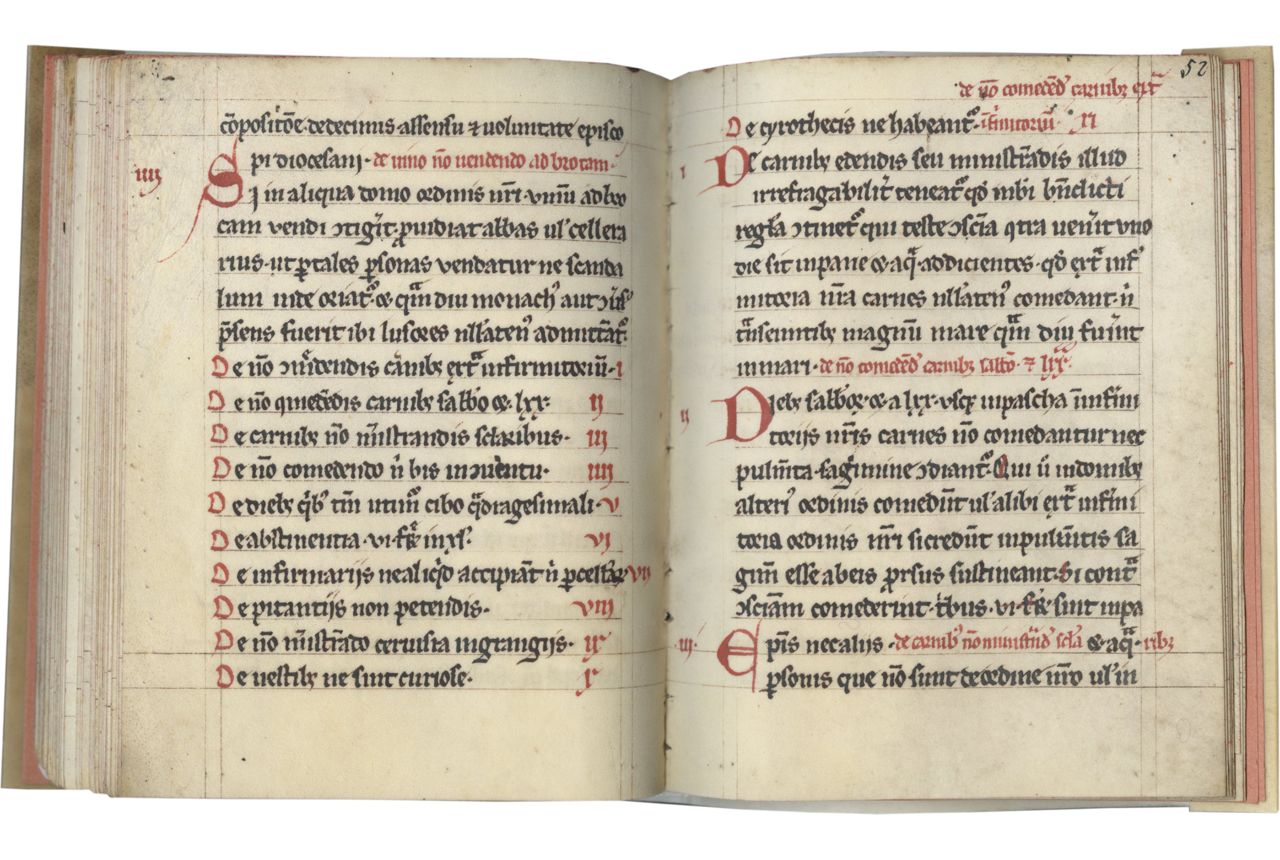 co̅positio̅e· de decimis assensu ⁊ voluntate episco
pi diocesani· de uino no̅ uendendo ad brocam·
iiij
Si in aliqua domo ordinis nr̅i· vinu̅ ad bro
cam vendi ꝯtig͛it· ꝓuidiat abbas ul' cellera
rius· ut ꝑ tales ꝑsonas vendatur ne scanda
lum inde oriat᷒· ⁊ qͣm diu monach᷒ aut ꝯu͛s᷒
p̅sens fuerit ibi lusores nll'aten᷒ admittat᷒·
De no̅ ꝯmedendis carnibꝫ ext͛ͣ infirmitoriu̅· i
De no̅ ꝯmedendis carnibꝫ sabbo ⁊ lxx· ii
De carnibꝫ no̅ mi̅strandis sclaribus· iii
De no̅ comedendo n̅ bis in ꝯuentu· iiij
De diebꝫ qͥbꝫ tm̅ utim᷒ cibo qͣdragesimali· v
De abstinentia· vi· fr̅e in xl᷒· vi
De infirmarijs ne aliqͥd accipia̅t n̅ ꝑ cell'ar' vii
De pitantijs non petendis· viii
De no̅ mi̅strando ceruisia in grangijs· ix
De vestibꝫ ne sint curiose· x
52
de no̅ comede̅d' carnibꝫ ext͛ͣ
De cyrothecis ne habeant᷒· i̅firmitoriu̅· xi
i
De carnibꝫ edendis seu ministra̅dis illud
irrefragabilit͛ teneat᷒ qd' in bi̅ bn̅dicti
regl'a ꝯtinet᷒ qui teste ꝯscia̅ ꝯtra uen͛it vno
die sit in pane ⁊ aqͣ· addicientes· qd' ext͛ͣ inf͛
mitoria nr̅a carnes nll'aten᷒ comedant· n̅
t͛nseuntibꝫ magnu̅ mare qͣm diu fu͛int
in mari· de no̅ comede̅d' carnibꝫ sabbo̅· ⁊ lxxͣ·
ii
Diebꝫ sabb'or· ⁊ a lxx· vsqꝫ in pascha i̅ infirmi
torijs nr̅is carnes no̅ comedantur nec
pulm̅ta· sagimine ꝯdiant᷒· Qui u͛ in domibꝫ
alteri᷒ ordinis comedu̅t ul' alibi ext͛ͣ infirmi
toria ordinis nr̅i si credu̅t in pulm̅tis sa
gim̅ esse ab eis prorsus sustineant· Si cont͛ͣ
ꝯscia̅m comederint· t͛bus· vi· fr̅e sint in pa
iii·
Ep̅is nec alijs· de carnibꝫ no̅ministra̅d' scl'a ⁊ aqͣ· ribꝫ
ꝑsonis que no̅ sunt de ordine nr̅o ul' in